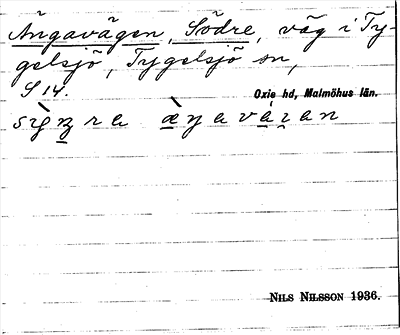 Ängavägen, Södre, väg i Ty-
gelsjö, Tygelsjö sn,
S 14.
Oxie hd, Malmöhus län.
NILS NILSSON 1936.